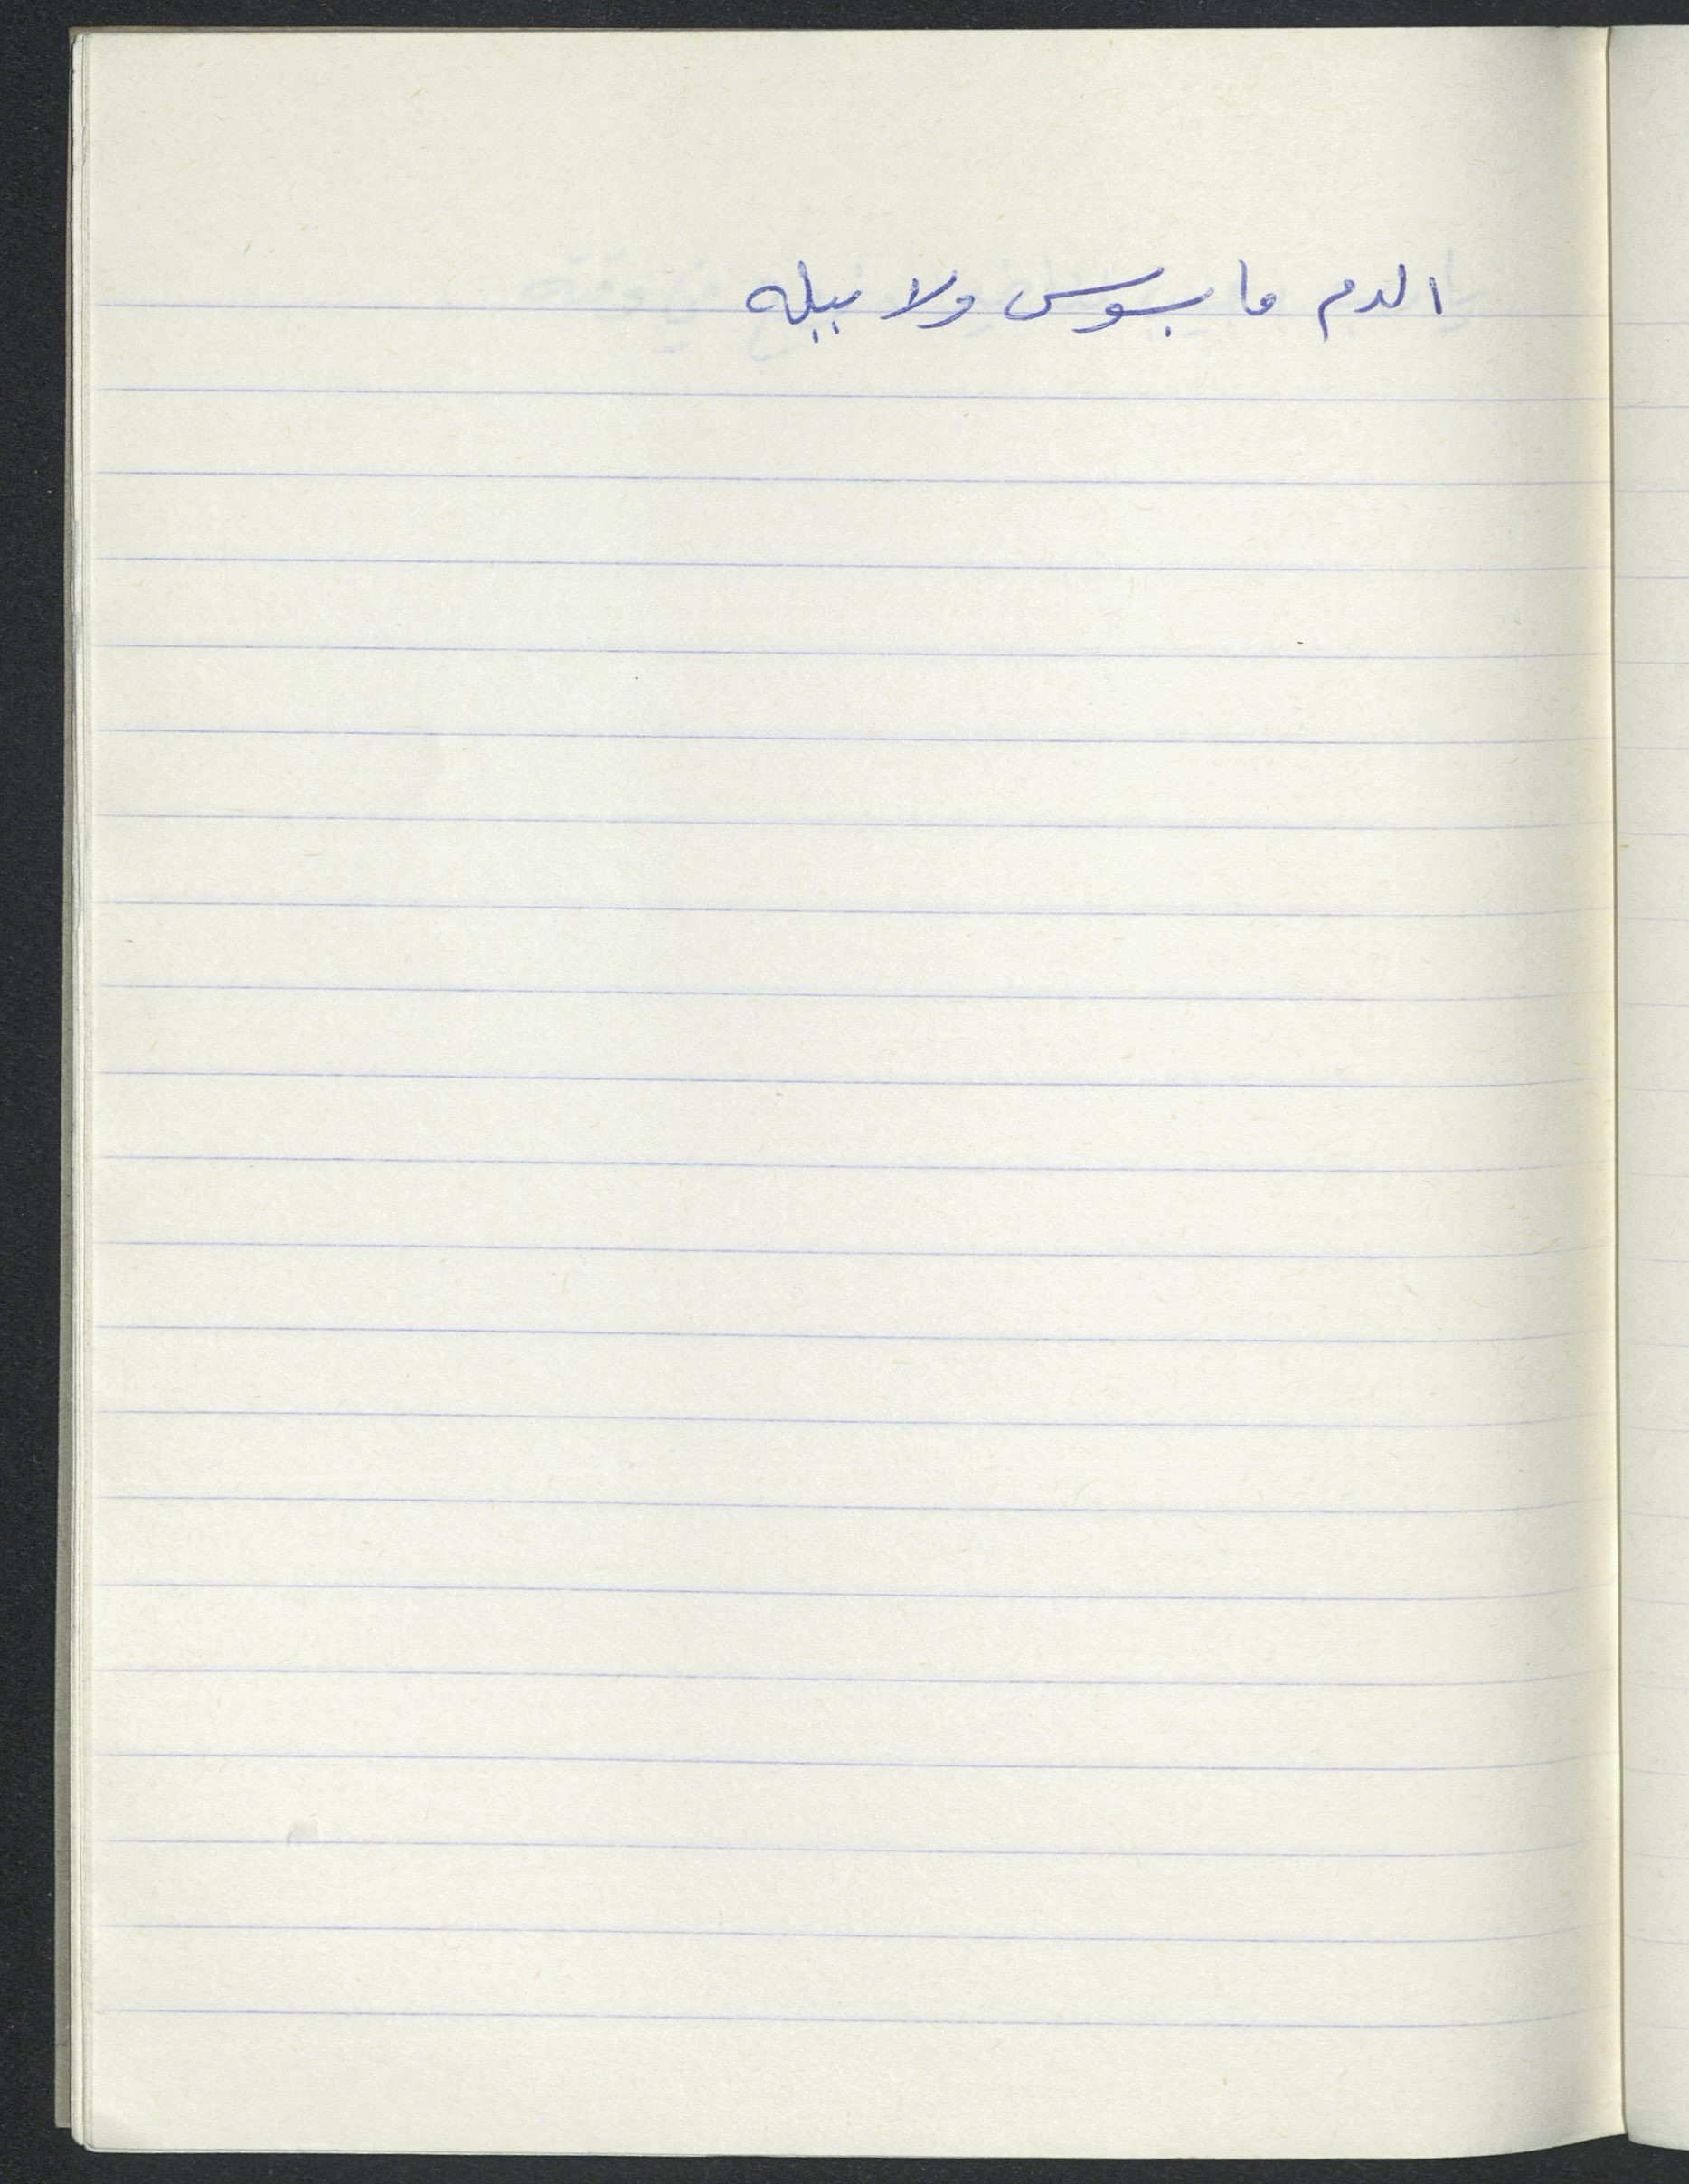 الدم ما بسوس ولا ببله